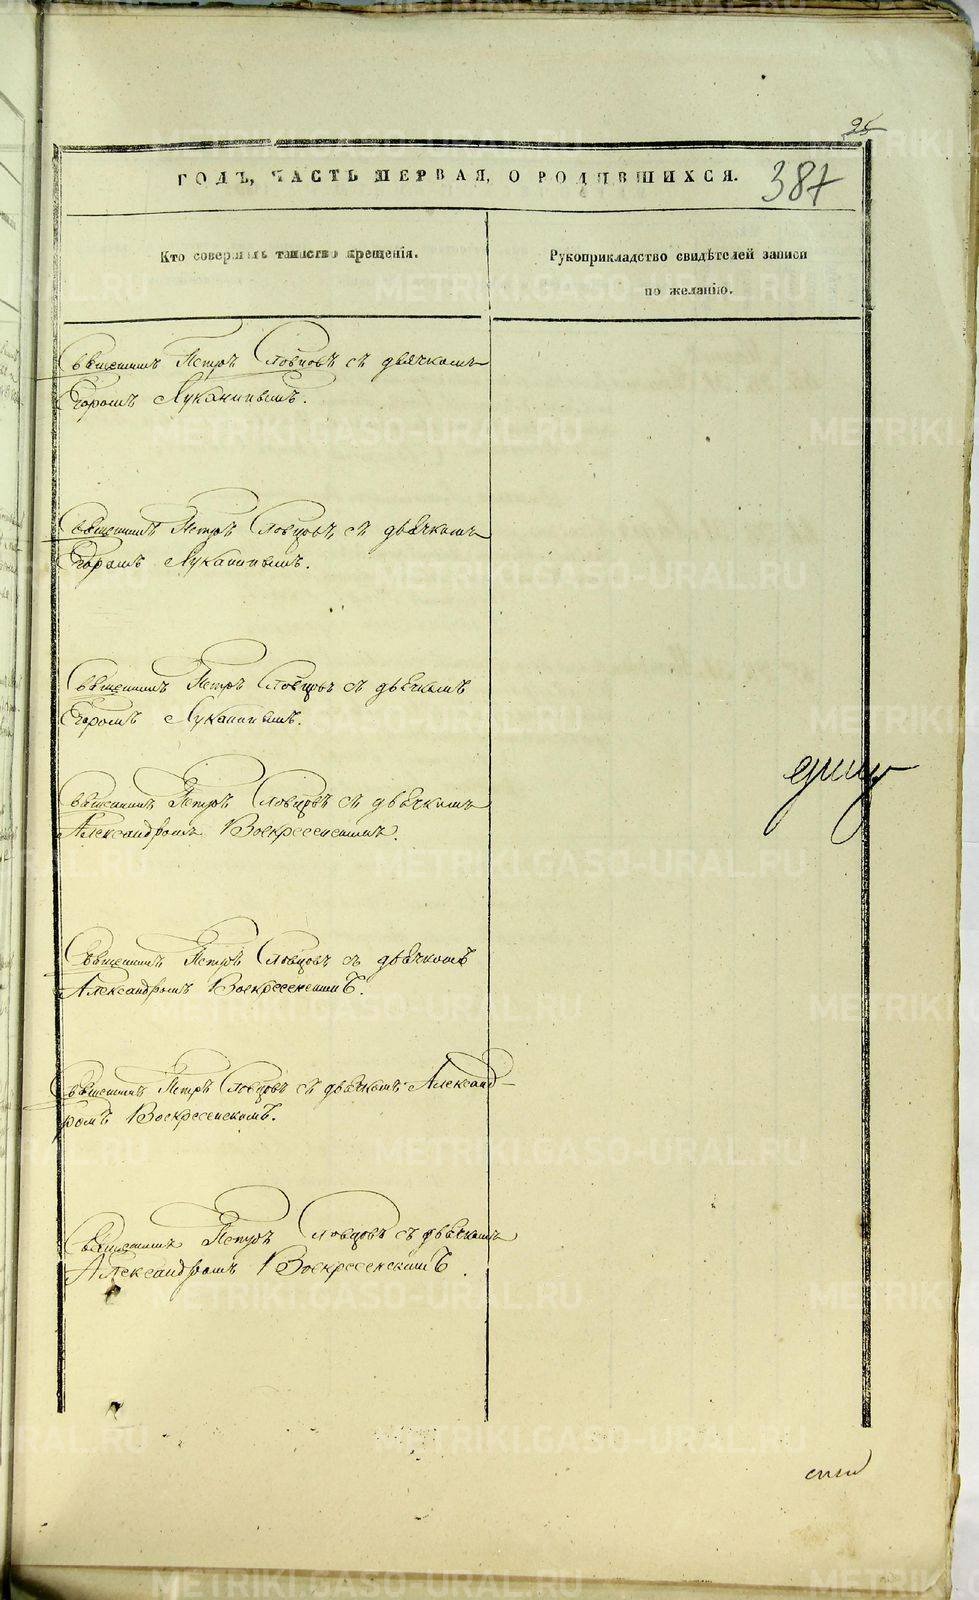 25
ГОДЪ, ЧАСТЬ ПЕРВАЯ, О РОДИВШИХСЯ.
387
Кто совершалъ таинство крещенія.
Рукоприкладство свидѣтелей записи
по желанію.
Священникъ Петръ Словцовъ съ дьячкомъ
Егоромъ Луканинымъ.
Священникъ Петръ Словцовъ съ дьячкомъ
Егоромъ Луканинымъ.
Священникъ Петръ Словцовъ съ дьячкомъ
Егоромъ Луканинымъ.
Священникъ Петръ Словцовъ съ дьячкомъ
Александромъ Воскресенскимъ.
Священникъ Петръ Словцовъ съ дьячкомъ
Александромъ Воскресенскимъ.
Священникъ Петръ Словцовъ съ дьячкомъ Александ-
ромъ Воскресенскомъ.
Священникъ Петръ Словцовъ съ дьячкомъ
Александромъ Воскресенскимъ.
METRIKI.GASO-URAL.RU